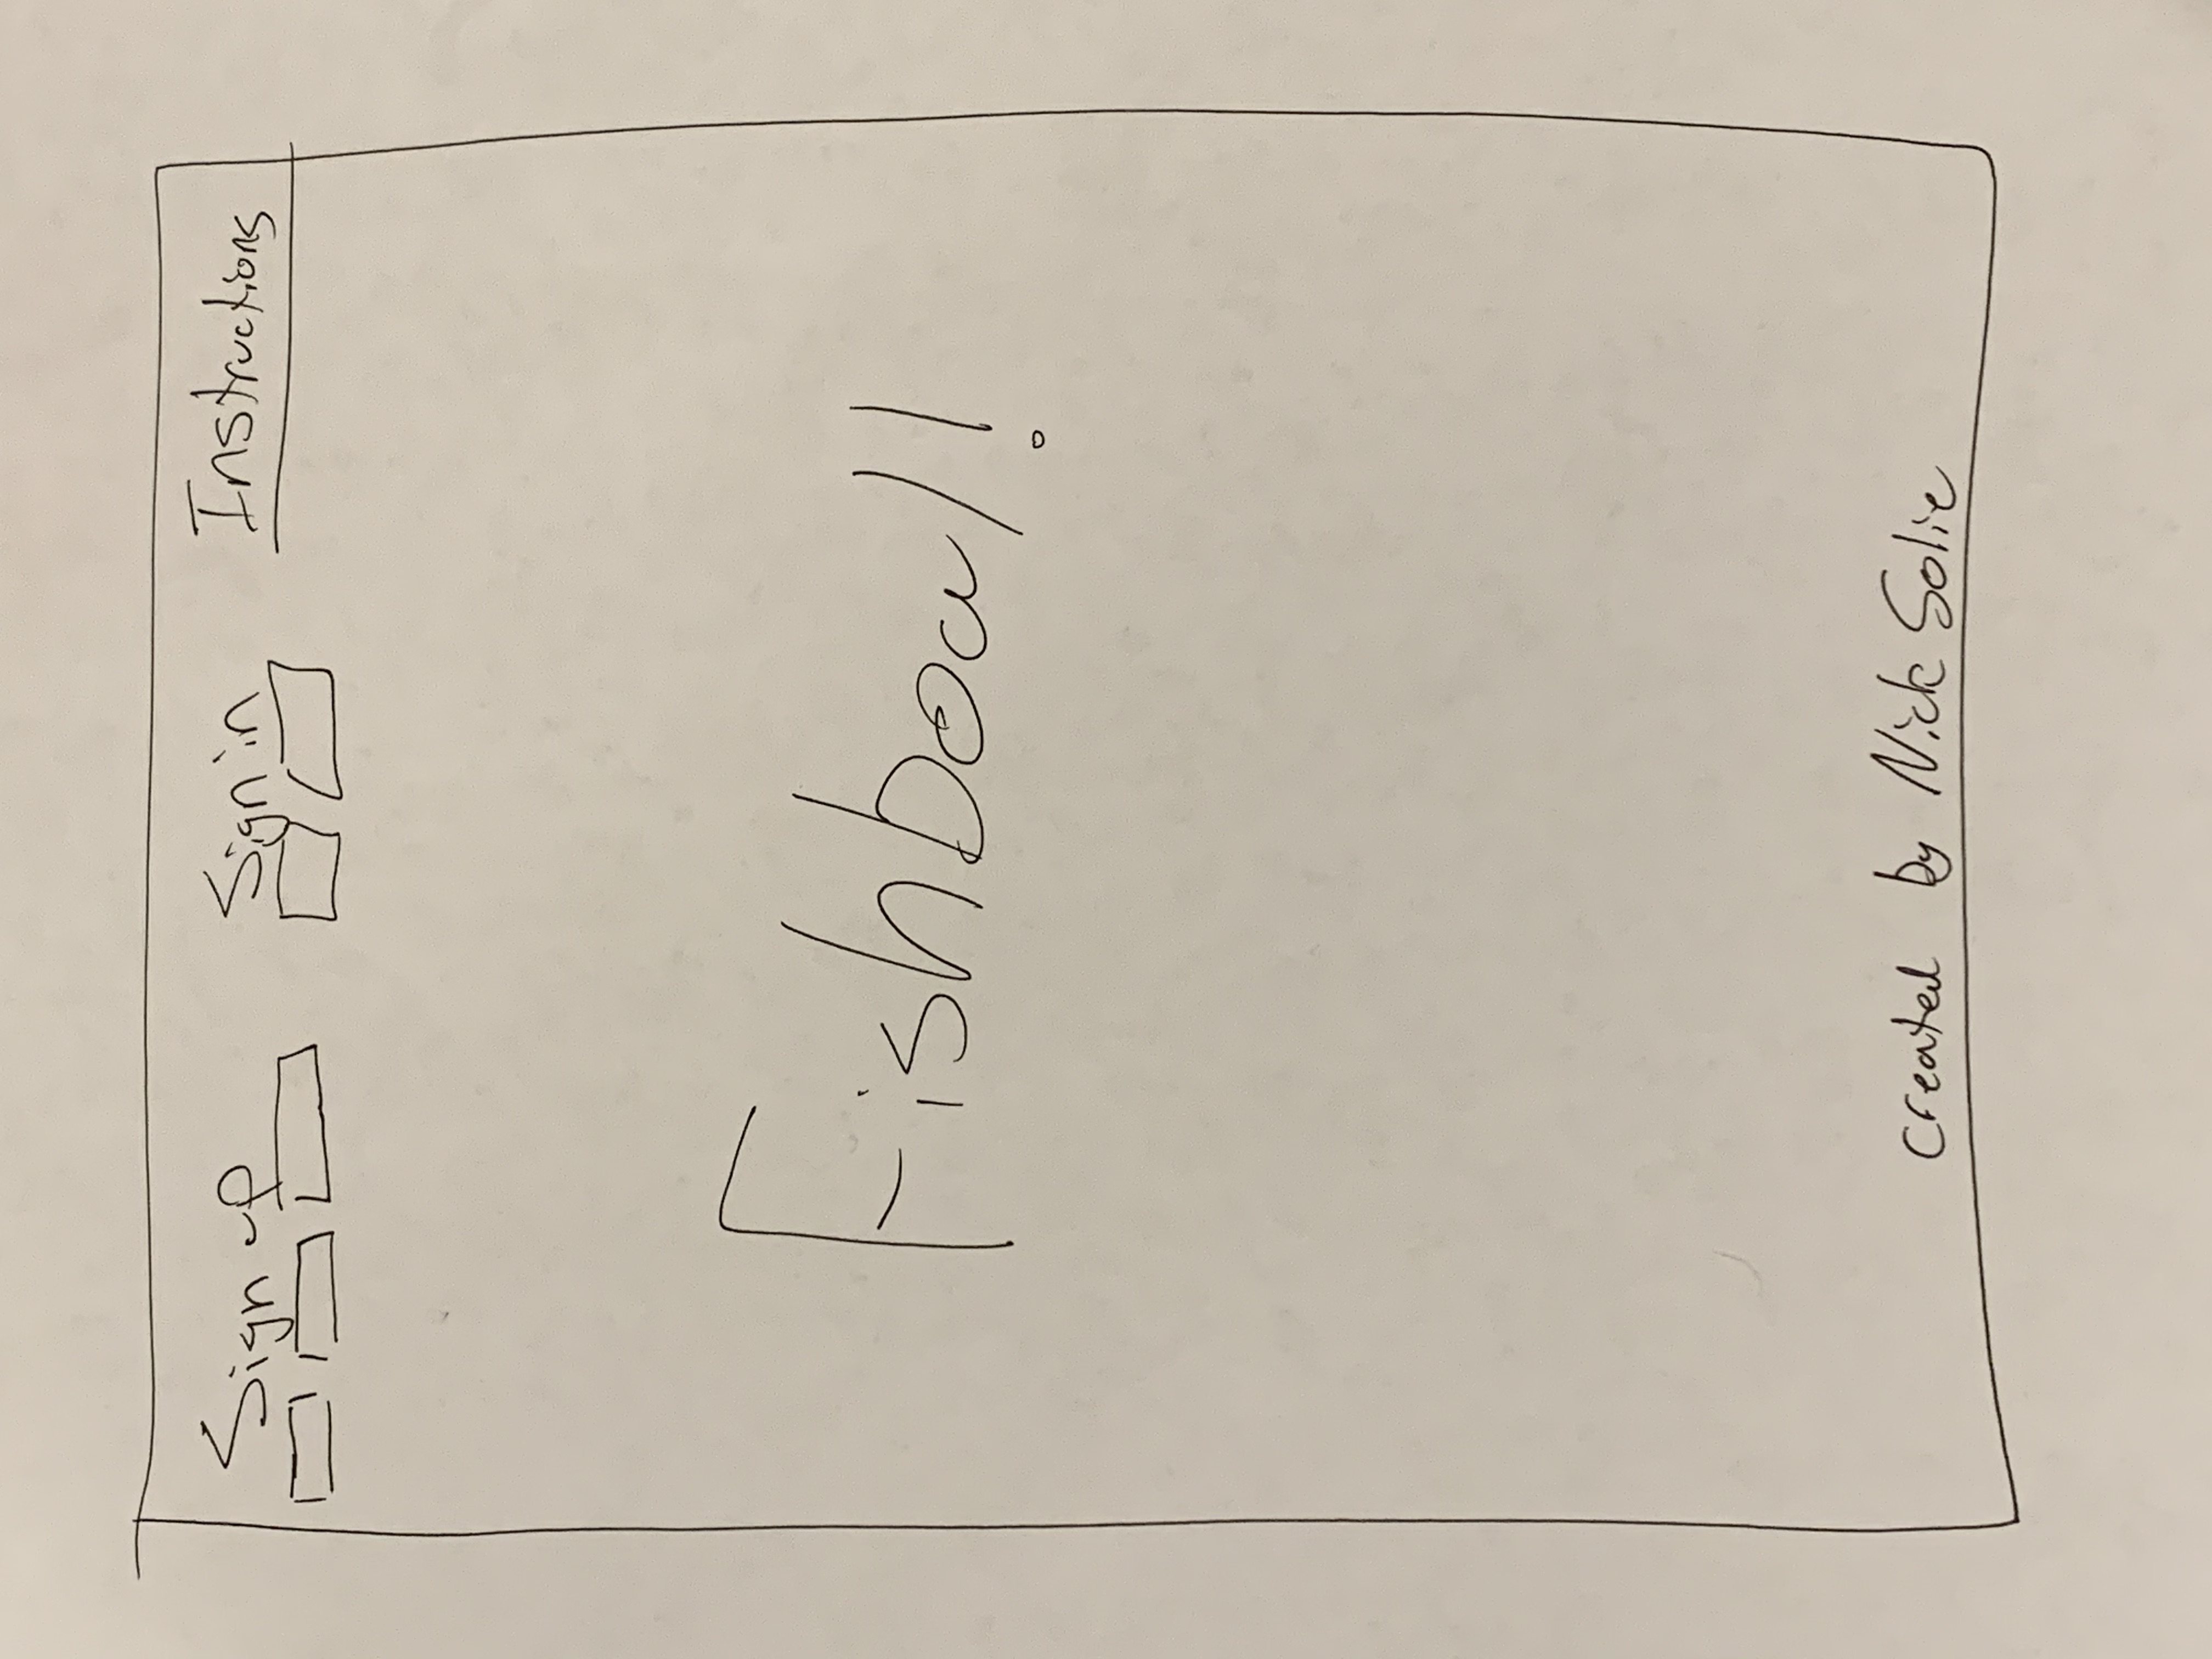 Sign up Sign in Instructions
Fishbowl!
created by Nick Solie